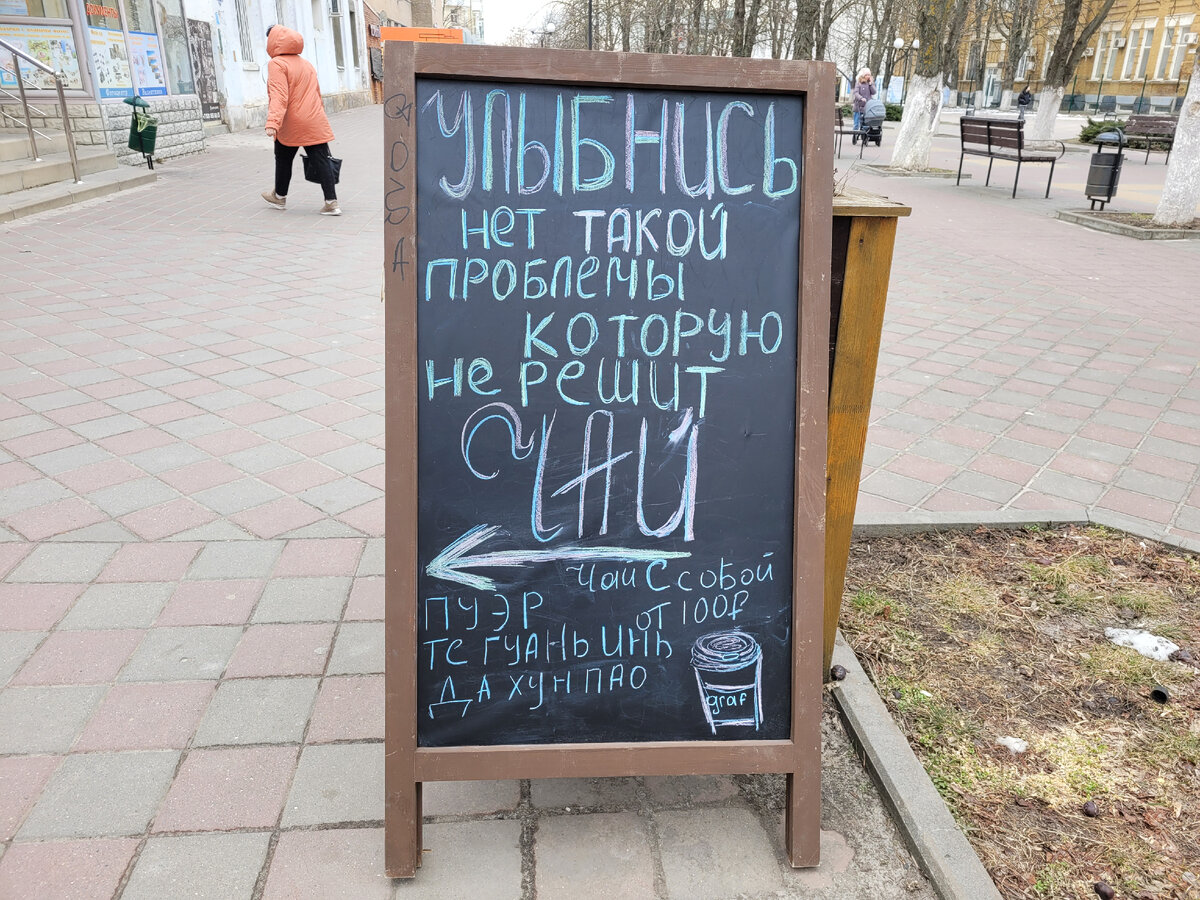 УЛЫБНИСЬ
нет такой
проблемы
которую
не решит
ЧАЙ
Чай с собой
ПУЭР от 100₽
Те ГУАНЬ ИНЬ
ДА ХУН ПАО
graf